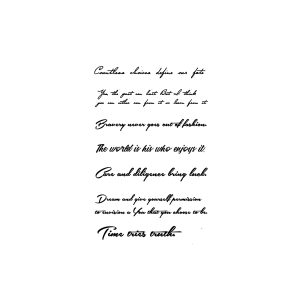 Countless choices define our fate
Yes the past can hurt But I think
you can either run from it or learn from it
Bravery never goes out of fashion.
The world is his who enjoys it.
Care and diligence bring luck.
Dream and give yourself permission
to envision a You that you choose to be
Time tries truth.